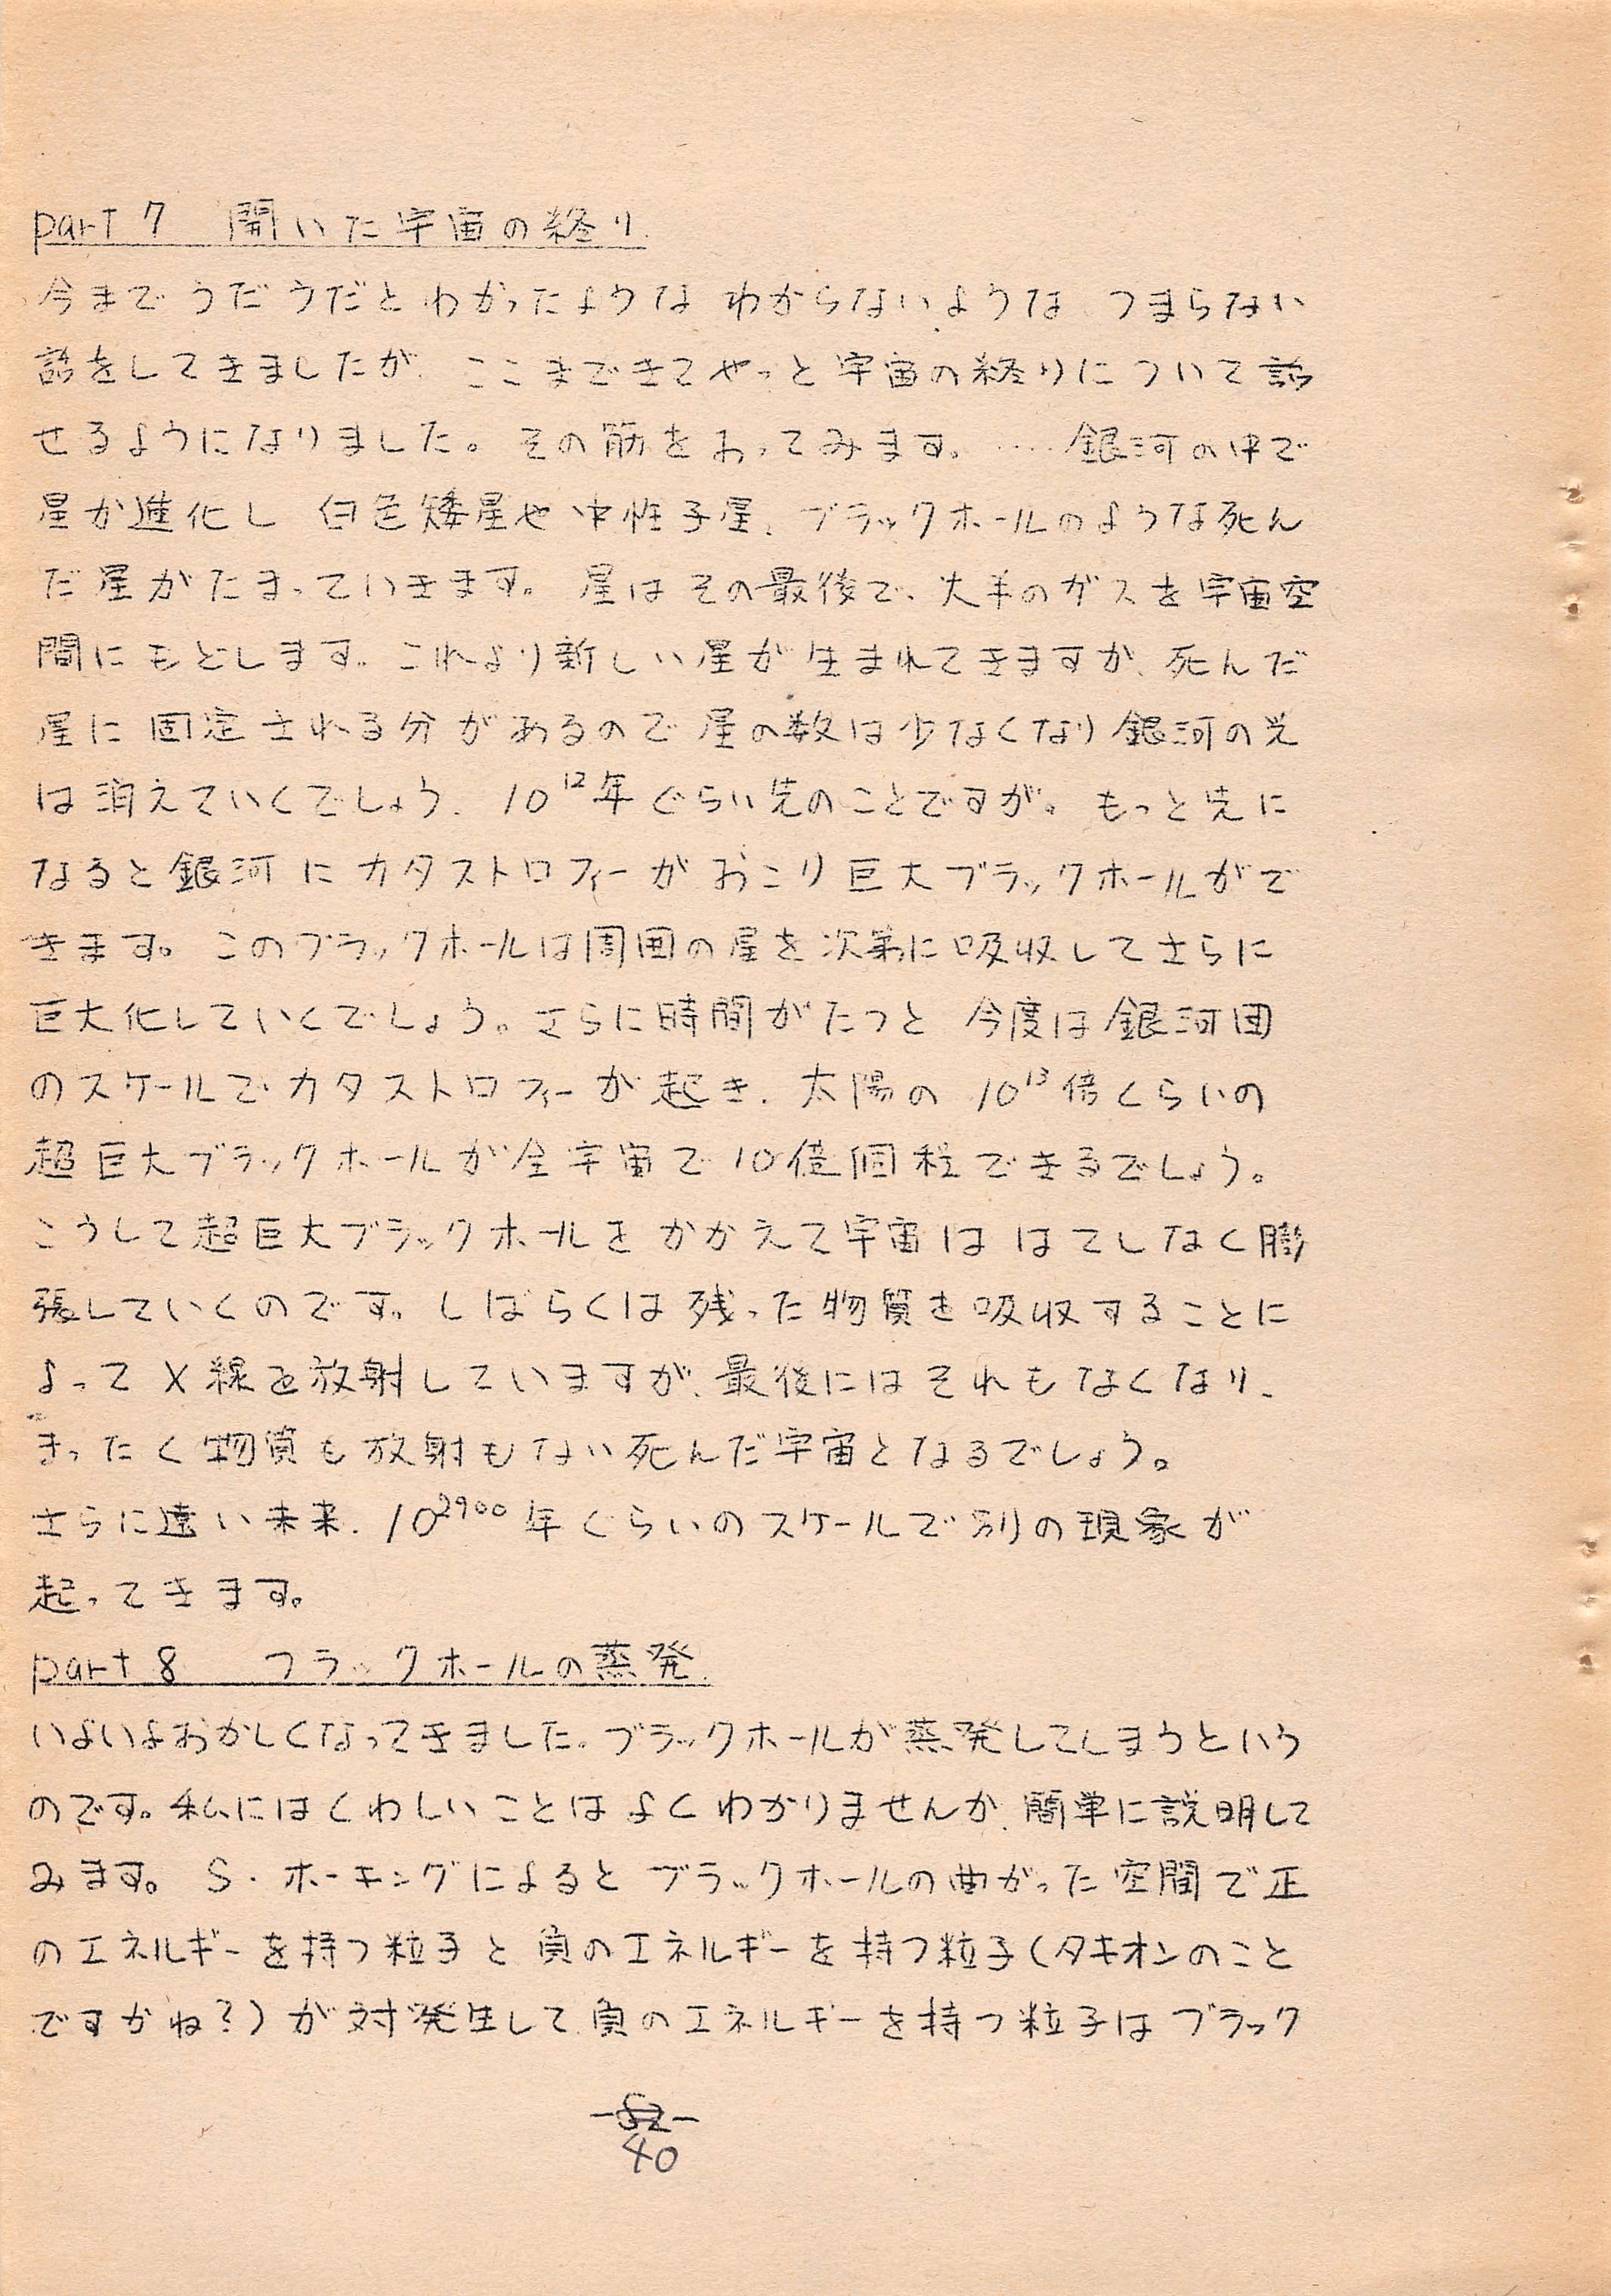 part 7 開いた宇宙の終り
今まで うだうだと わかったような わからないような つまらない
話をしてきましたが、ここまできてやっと宇宙の終りについて話
せるようになりました。その筋をおってみます。……銀河の中で
星が進化し 白色矮星や中性子星、ブラックホールのような死ん
だ星がたまっていきます。星はその最後で、大半のガスを宇宙空
間にもどします。これより新しい星が生まれてきますが、死んだ
星に固定される分があるので星の数は少なくなり銀河の光
は消えていくでしょう。10¹²年ぐらい先のことですが。もっと先に
なると銀河にカタストロフィーがおこり巨大ブラックホールがで
きます。このブラックホールは周囲の星を次第に吸収してさらに
巨大化していくでしょう。さらに時間がたつと 今度は銀河団
のスケールでカタストロフィーが起き、太陽の 10¹³倍くらいの
超巨大ブラックホールが全宇宙で10億個程できるでしょう。
こうして超巨大ブラックホールをかかえて宇宙は はてしなく膨
張していくのです。しばらくは残った物質を吸収することに
よってX線を放射していますが、最後にはそれもなくなり、
まったく物質も放射もない死んだ宇宙となるでしょう。
さらに遠い未来、10²⁹⁰⁰年ぐらいのスケールで別の現象が
起ってきます。
part 8 ブラックホールの蒸発
いよいよおかしくなってきました。ブラックホールが蒸発してしまうという
のです。私にはくわしいことはよくわかりませんが、簡単に説明して
みます。S・ホーキングによると ブラックホールの曲がった空間で正
のエネルギーを持つ粒子と負のエネルギーを持つ粒子(タキオンのこと
ですかね?)が対発生して、負のエネルギーを持つ粒子は ブラック
40